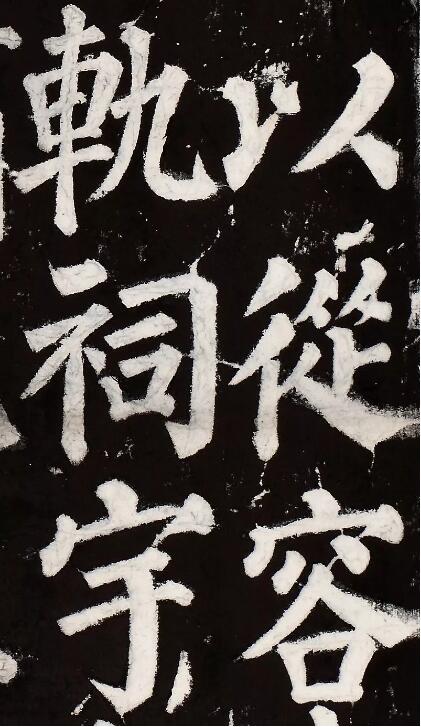 以從容
軌祠宇